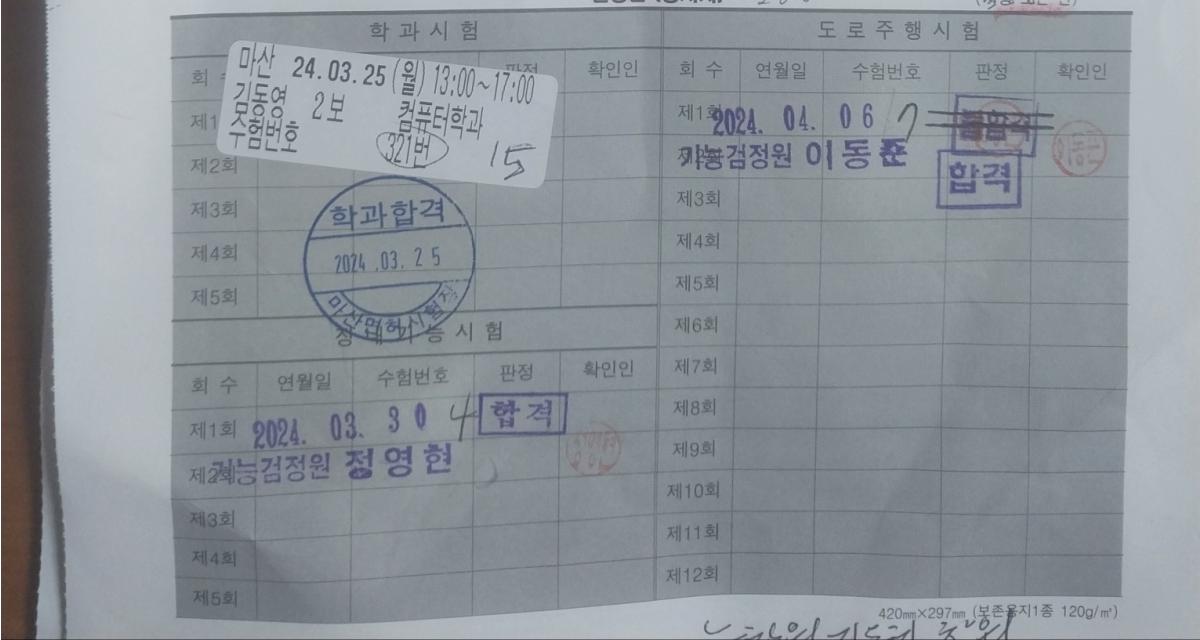 학 과 시 험
마산 24.03.25(월) 13:00~17:00
김동영 2보 컴퓨터학과
수험번호 321번 15
회 수 판정 확인인
제1
제2회
제3회
제4회
제5회
학과합격
2024.03.25
마산면허시험장
장 내 기 능 시 험
회 수 연월일 수험번호 판정 확인인
제1회 2024. 03. 30 4 합격
제2회 기능검정원 정영현
제3회
제4회
제5회
도 로 주 행 시 험
회 수 연월일 수험번호 판정 확인인
제1회 2024. 04. 06 7 불합격
기능검정원 이동준 합격
제3회
제4회
제5회
제6회
제7회
제8회
제9회
제10회
제11회
제12회
420mm×297mm (보존용지1종 120g/㎡)